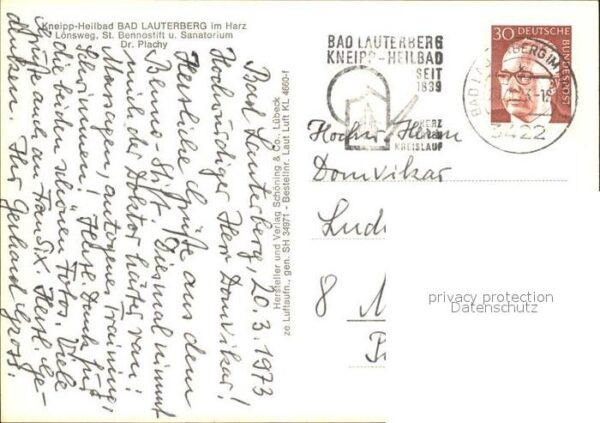 Kneipp-Heilbad BAD LAUTERBERG im Harz
Lönsweg, St. Bennostift u. Sanatorium
Dr. Plachy
Bad Lauterberg, 20.3.1973
Hochwürdiger Herr Domvikar!
Herzliche Grüße aus dem
Benno Stift. Diesmal nimmt
mich der Doktor härter ran:
Massagen, autogenes Training,
Schwimmen! Herzl. Dank für
die beiden schönen Fotos. Viele
Grüße auch an Herzl. Ge-
Ihr Gerhard Gross.
Hersteller und Verlag Schöning & Co., Lübeck
ze Luftaufn., gen. SH 34971 - Bestellnr. Laut Luft KL 4660-f
BAD LAUTERBERG
KNEIPP-HEILBAD
SEIT
1839
HERZ
KREISLAUF
30 DEUTSCHE
BUNDESPOST
3422
Hochw. Herrn
Domvikar
8
privacy protection
Datenschutz